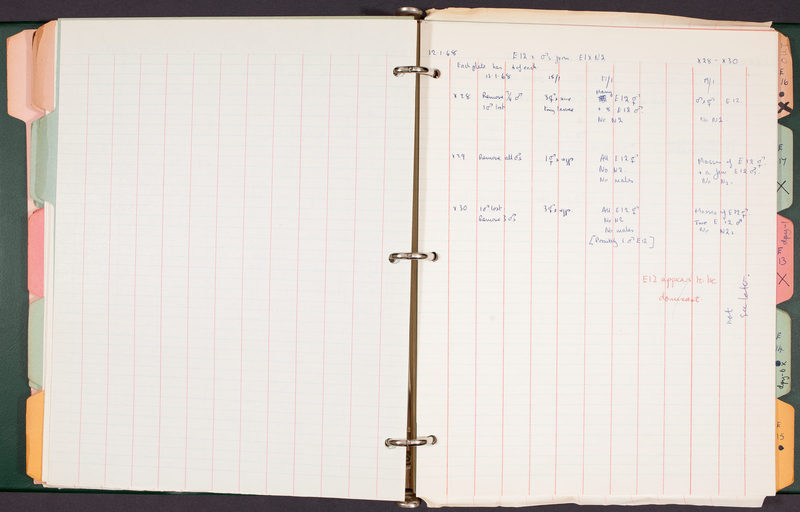 12.1.68 E12 x ♂s from E1 x N2 x28 – x30
Each plate has 4 of each
12.1.68 15/1 17/1
x28 Remove ♂ 3♀s are Many E12 ⚥ E12
1♂ lost tiny larvae + 8 E12 ♂
No N2 No N2
x29 Remove all ♂s 1⚥ + eggs All E12 ⚥ Masses of E12 ⚥
No N2 + a few E12 ♂
No males No N2.
x30 1♂ lost 3⚥s + eggs All E12 ⚥ Masses of E12 ⚥
Remove 3 ♂s No N2 Two E12 ♂
No males No N2s
[Possibly 1 ♂ E12]
E12 appears to be
dominant
not
see later.
E
16
X
E
17
X
dpy-1
E
13
X
E
14
dpy-6 x
E
15